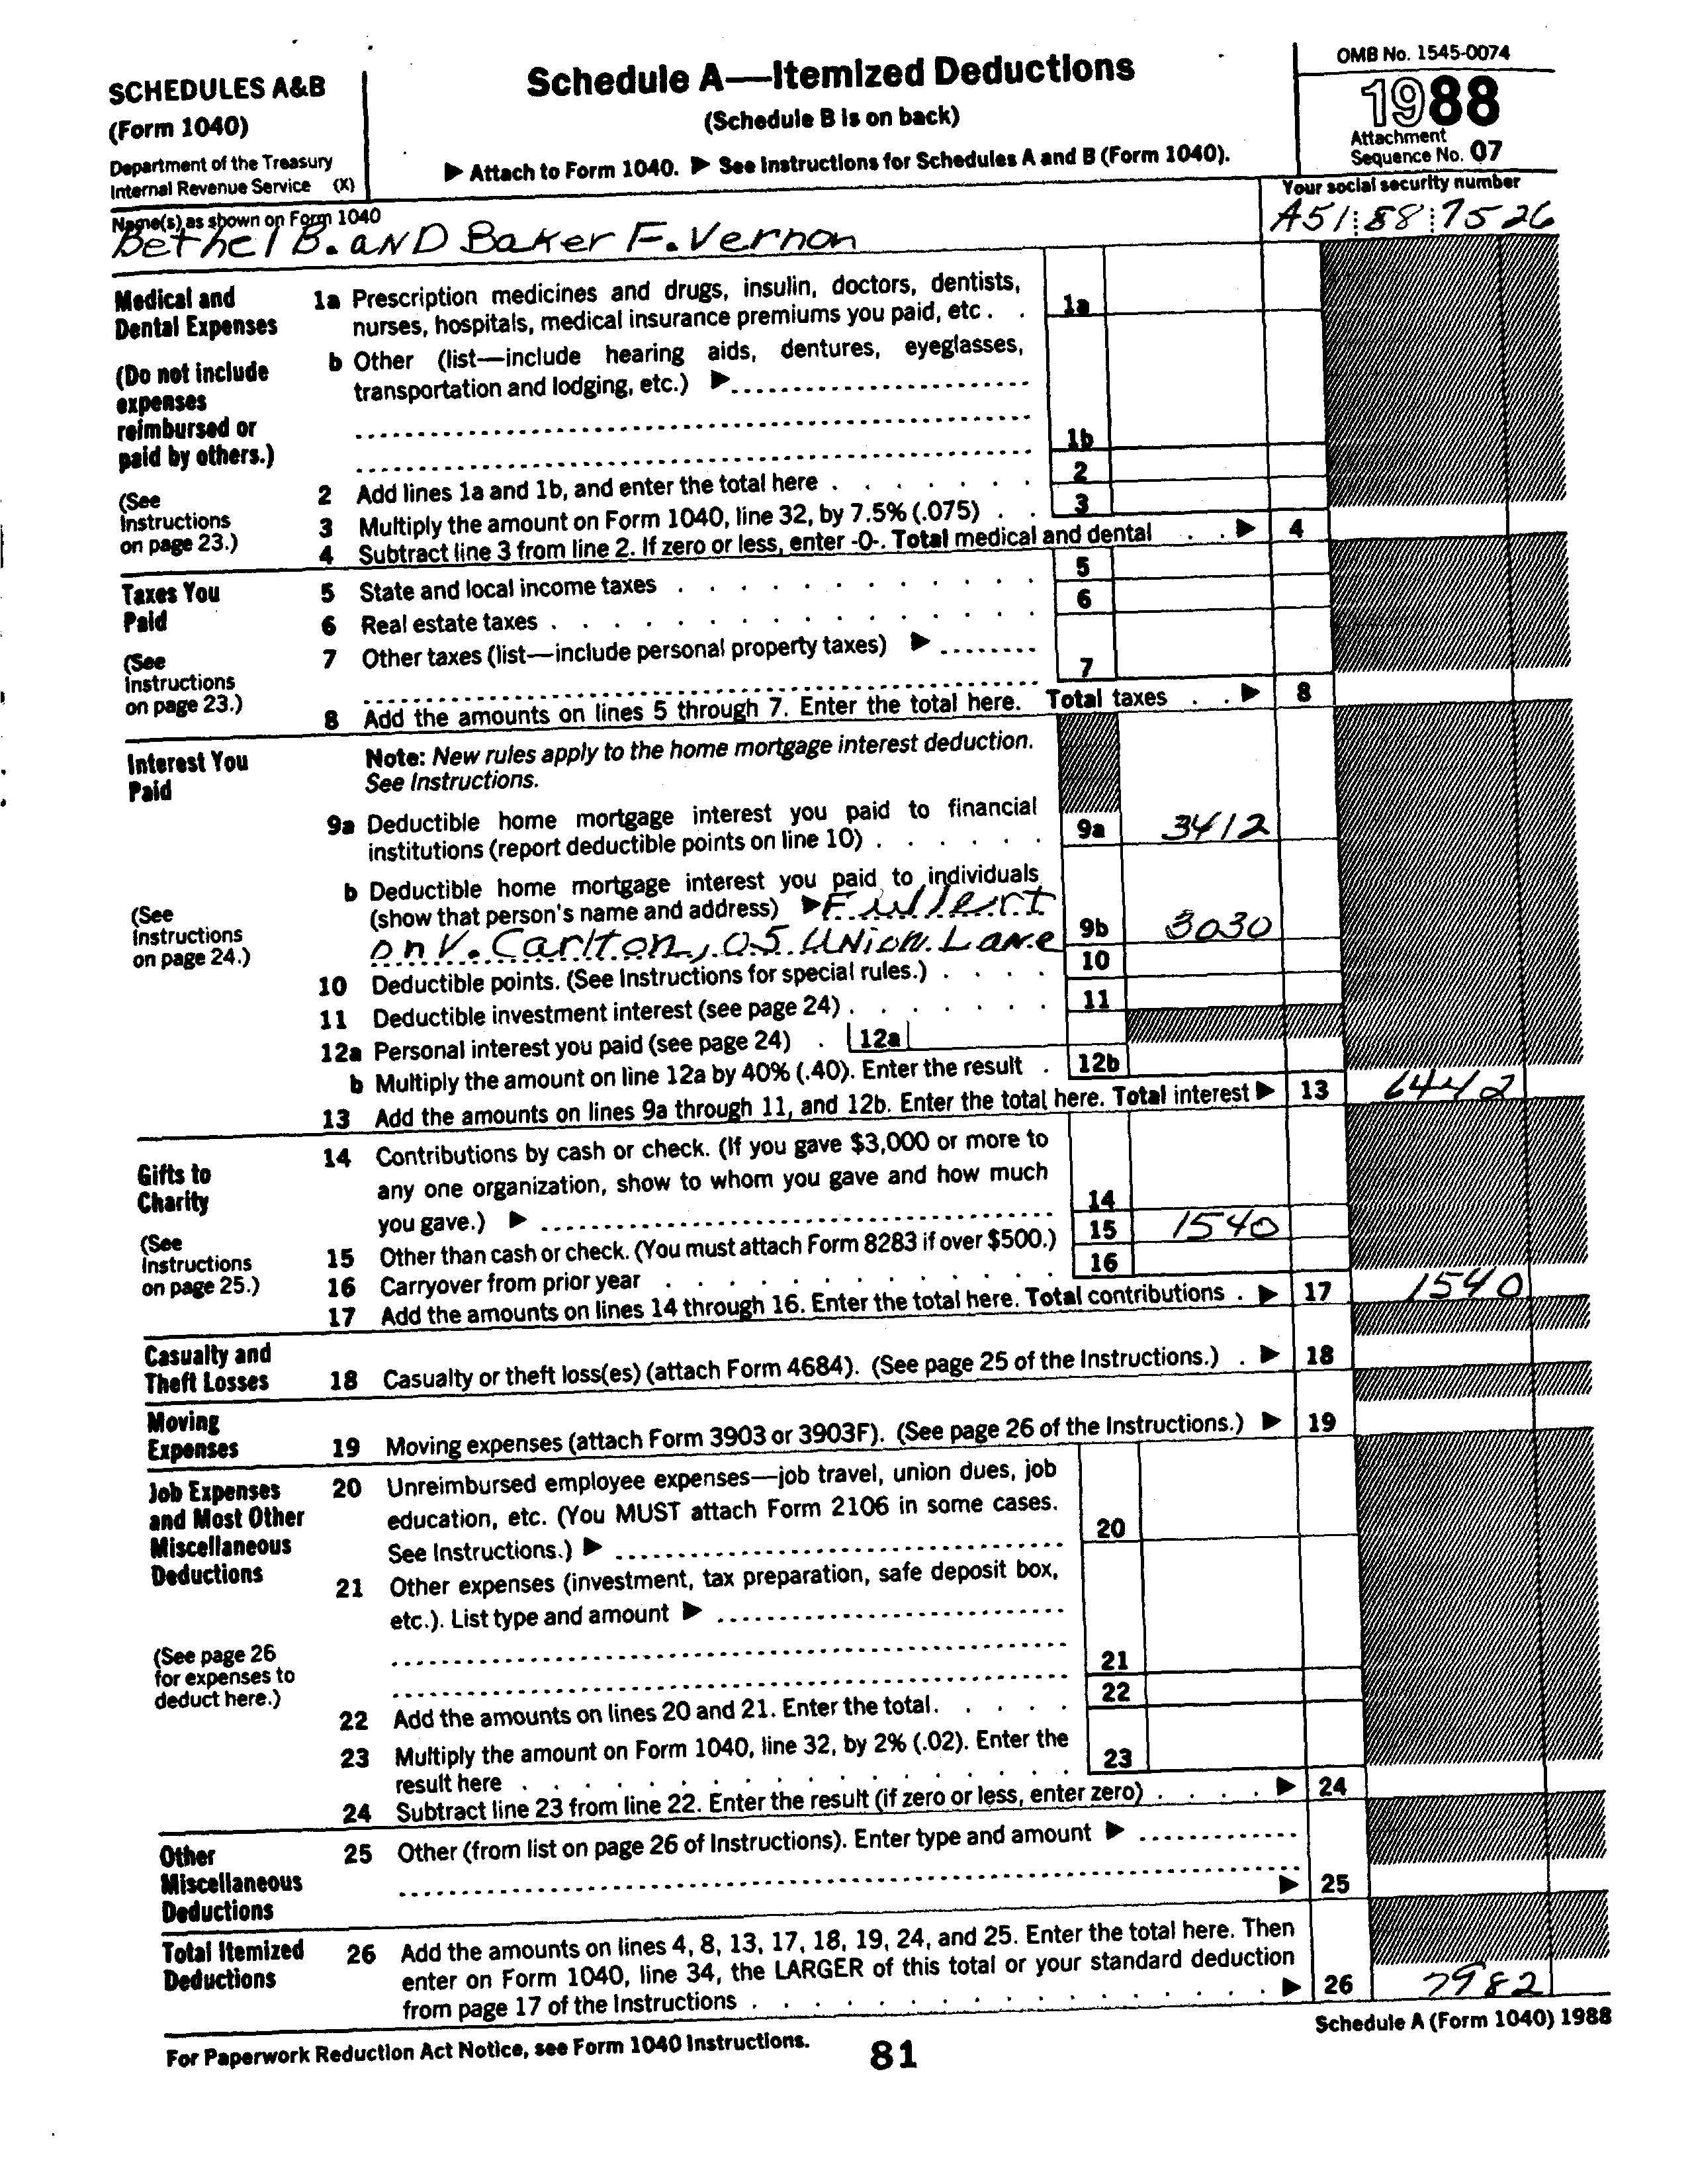 SCHEDULES A&B
(Form 1040)
Department of the Treasury
Internal Revenue Service (X)
Schedule A—Itemized Deductions
(Schedule B is on back)
▶ Attach to Form 1040. ▶ See Instructions for Schedules A and B (Form 1040).
OMB No. 1545-0074
1988
Attachment
Sequence No. 07
Name(s) as shown on Form 1040
Bethel B. and Baker F. Vernon
Your social security number
A51 88 7526
Medical and
Dental Expenses
(Do not include
expenses
reimbursed or
paid by others.)
(See
Instructions
on page 23.)
1a Prescription medicines and drugs, insulin, doctors, dentists,
nurses, hospitals, medical insurance premiums you paid, etc . . 1a
b Other (list—include hearing aids, dentures, eyeglasses,
transportation and lodging, etc.) ▶
1b
2 Add lines 1a and 1b, and enter the total here . . . . . . . 2
3 Multiply the amount on Form 1040, line 32, by 7.5% (.075) . . 3
4 Subtract line 3 from line 2. If zero or less, enter -0-. Total medical and dental . . ▶ 4
Taxes You
Paid
(See
Instructions
on page 23.)
5 State and local income taxes . . . . . . . . . . . 5
6 Real estate taxes . . . . . . . . . . . . . 6
7 Other taxes (list—include personal property taxes) ▶
7
8 Add the amounts on lines 5 through 7. Enter the total here. Total taxes . . ▶ 8
Interest You
Paid
(See
Instructions
on page 24.)
Note: New rules apply to the home mortgage interest deduction.
See Instructions.
9a Deductible home mortgage interest you paid to financial
institutions (report deductible points on line 10) . . . . . . 9a 3412
b Deductible home mortgage interest you paid to individuals
(show that person's name and address) ▶ Fullert
on V. Carlton, 05 Union Lane 9b 3030
10 Deductible points. (See Instructions for special rules.) . . . . 10
11 Deductible investment interest (see page 24) . . . . . . . 11
12a Personal interest you paid (see page 24) . 12a
b Multiply the amount on line 12a by 40% (.40). Enter the result . 12b
13 Add the amounts on lines 9a through 11, and 12b. Enter the total here. Total interest ▶ 13 6442
Gifts to
Charity
(See
Instructions
on page 25.)
14 Contributions by cash or check. (If you gave $3,000 or more to
any one organization, show to whom you gave and how much
you gave.) ▶ 14
15 Other than cash or check. (You must attach Form 8283 if over $500.) 15 1540
16 Carryover from prior year . . . . . . . . . . . 16
17 Add the amounts on lines 14 through 16. Enter the total here. Total contributions . ▶ 17 1540
Casualty and
Theft Losses
18 Casualty or theft loss(es) (attach Form 4684). (See page 25 of the Instructions.) . ▶ 18
Moving
Expenses
19 Moving expenses (attach Form 3903 or 3903F). (See page 26 of the Instructions.) ▶ 19
Job Expenses
and Most Other
Miscellaneous
Deductions
(See page 26
for expenses to
deduct here.)
20 Unreimbursed employee expenses—job travel, union dues, job
education, etc. (You MUST attach Form 2106 in some cases.
See Instructions.) ▶ 20
21 Other expenses (investment, tax preparation, safe deposit box,
etc.). List type and amount ▶
21
22 Add the amounts on lines 20 and 21. Enter the total. . . . . 22
23 Multiply the amount on Form 1040, line 32, by 2% (.02). Enter the
result here . . . . . . . . . . . . . . . . 23
24 Subtract line 23 from line 22. Enter the result (if zero or less, enter zero) . . . . ▶ 24
Other
Miscellaneous
Deductions
25 Other (from list on page 26 of Instructions). Enter type and amount ▶
▶ 25
Total Itemized
Deductions
26 Add the amounts on lines 4, 8, 13, 17, 18, 19, 24, and 25. Enter the total here. Then
enter on Form 1040, line 34, the LARGER of this total or your standard deduction
from page 17 of the Instructions . . . . . . . . . . . . . . . . ▶ 26 7982
For Paperwork Reduction Act Notice, see Form 1040 Instructions.
81
Schedule A (Form 1040) 1988